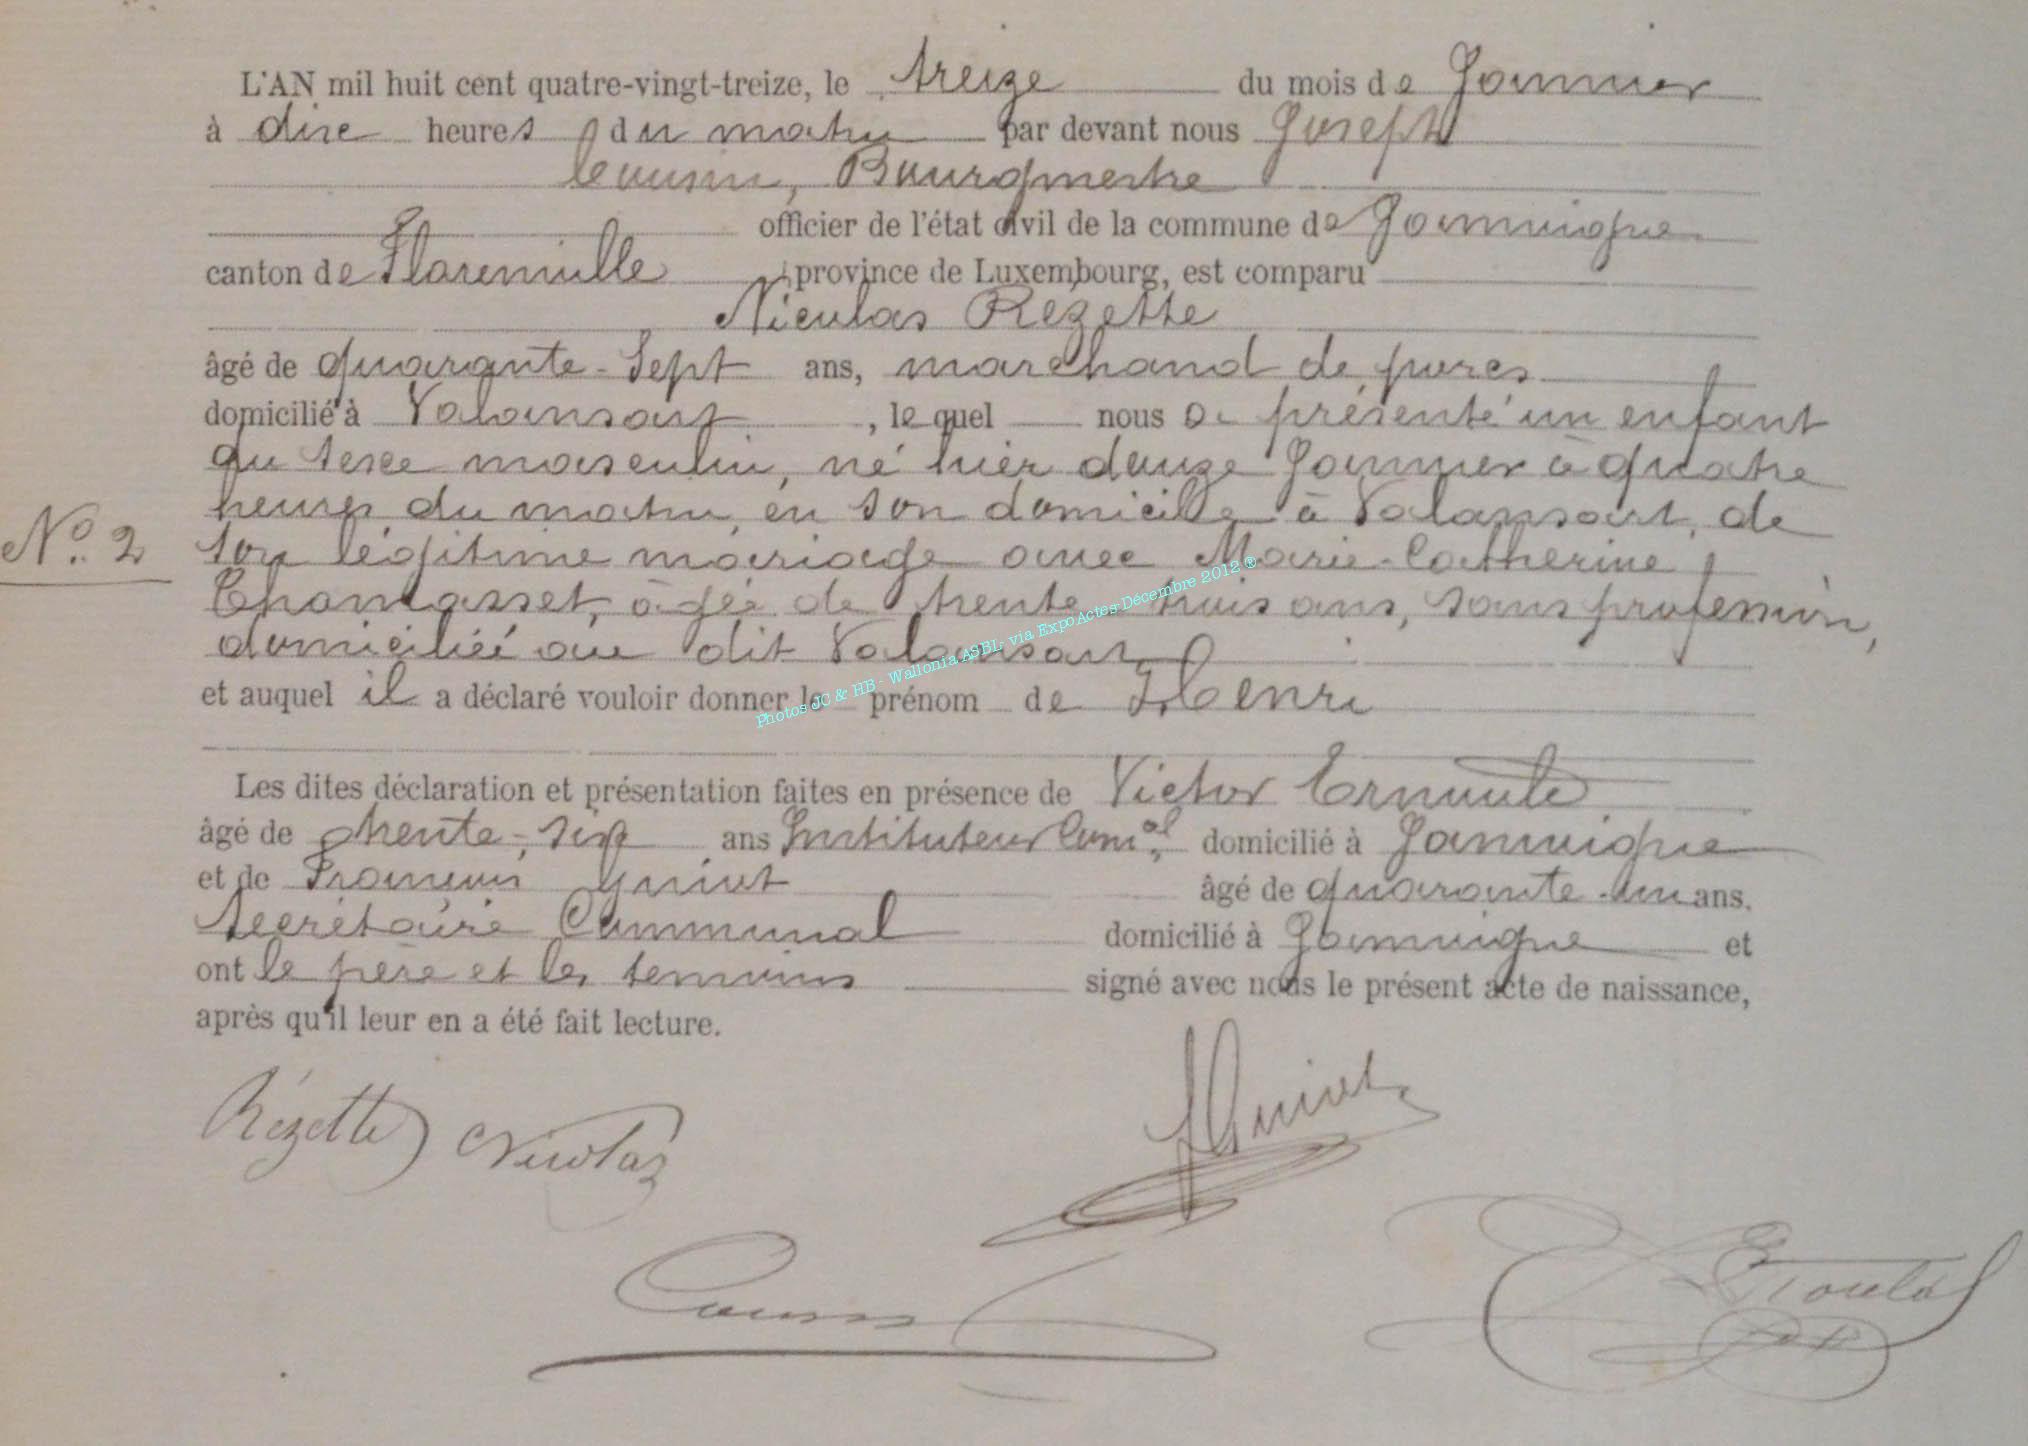 L'AN mil huit cent quatre-vingt-treize, le treize du mois de Janvier
à dix heures du matin par devant nous Joseph
Cousin, Bourgmestre
officier de l'état civil de la commune de Jamoigne
canton de Florenville province de Luxembourg, est comparu
Nicolas Rezette
âgé de quarante-sept ans, marchand de porcs
domicilié à Valansart, le quel nous a présenté un enfant
du sexe masculin, né hier douze Janvier à quatre
heures du matin, en son domicile à Valansart, de
N° 2 son légitime mariage avec Marie-Catherine
Thomasset, âgée de trente trois ans, sans profession,
domiciliée au dit Valansart
et auquel il a déclaré vouloir donner le prénom de Henri
Les dites déclaration et présentation faites en présence de Victor
âgé de trente-six ans Instituteur Com^al, domicilié à Jamoigne
et de François Guiot âgé de quarante-un ans.
Secrétaire Communal domicilié à Jamoigne et
ont le père et les témoins signé avec nous le présent acte de naissance,
après qu'il leur en a été fait lecture.
Rézette Nicolas
Guiot
Cousin
Photos JC & HB - Wallonia ASBL- via ExpoActes-Décembre 2012 ®